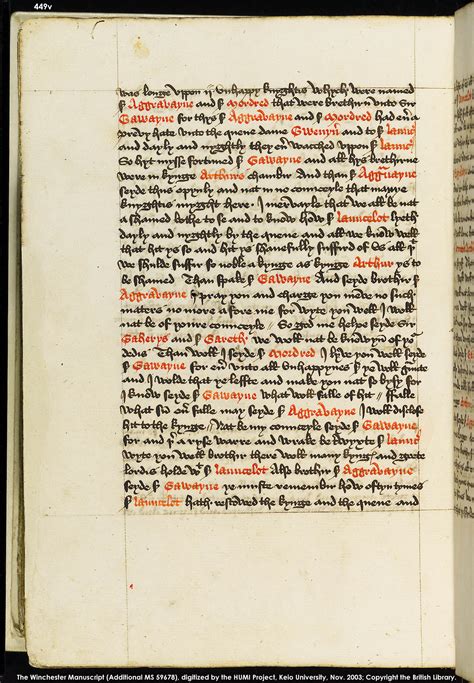 449v
was longe uppon ij unhappy knyghtis whych were named
sʳ Aggravayne and sʳ Mordred that were brethirn unto Sir
Gawayne for thys sʳ Aggravayne and sʳ Mordred had eūa
prevy hate unto the quene dame Gwenyūʳ and to sʳ launcˡ
and dayly and nyghtly they eūʳ wacched uppon sʳ launcˡ
So hyt mysse fortuned sʳ Gawayne and all hys brethirne
were in kynge Arthurs chambir And than sʳ Aggravayne
seyde thus opynly and nat in no counceyle that manye
knyghtis myght here I mervayle that we all be nat
a shamed bothe to se and to know how sʳ launcelot lyeth
dayly and nyghtly by the quene and all we know well
that hit ys so and hit ys shamefully suffird of us all that
we shulde suffir so noble a kynge as kynge Arthur ys to
be shamed Than spake sʳ Gawayne And seyde brothir sʳ
Aggravayne I pray you and charge you meve no such
maters no more a fore me for wyte you well I woll
nat be of youre counceyle So god me helpe seyde Sir
Gaherys and sʳ Gareth we woll nat be knowyn of yoʳ
dedis Than woll I seyde sʳ Mordred I lyve you well seyde
sʳ Gawayne for eūʳ unto all unhappynes sʳ ye woll graunte
and I wolde that ye leffte all thys and make you nat so bysy for
I know seyde sʳ Gawayne what woll falle of hit Falle
what sūʳ falle may seyde sʳ Aggravayne I woll disclose
hit to the kynge Nat be my counceyle seyde sʳ Gawayne
for and þʳ a ryse warre and wrake be twyxte sʳ launcˡ
wyte you well brothir there woll many kyngˢ and grete
lordis holde wᵗ sʳ launcelot Also brothir sʳ Aggravayne
seyde sʳ Gawayne ye muste remembir how oftyn tymes
sʳ launcelot hath rescowed the kynge and the quene and
The Winchester Manuscript (Additional MS 59678), digitized by the HUMI Project, Keio University, Nov. 2003; Copyright the British Library